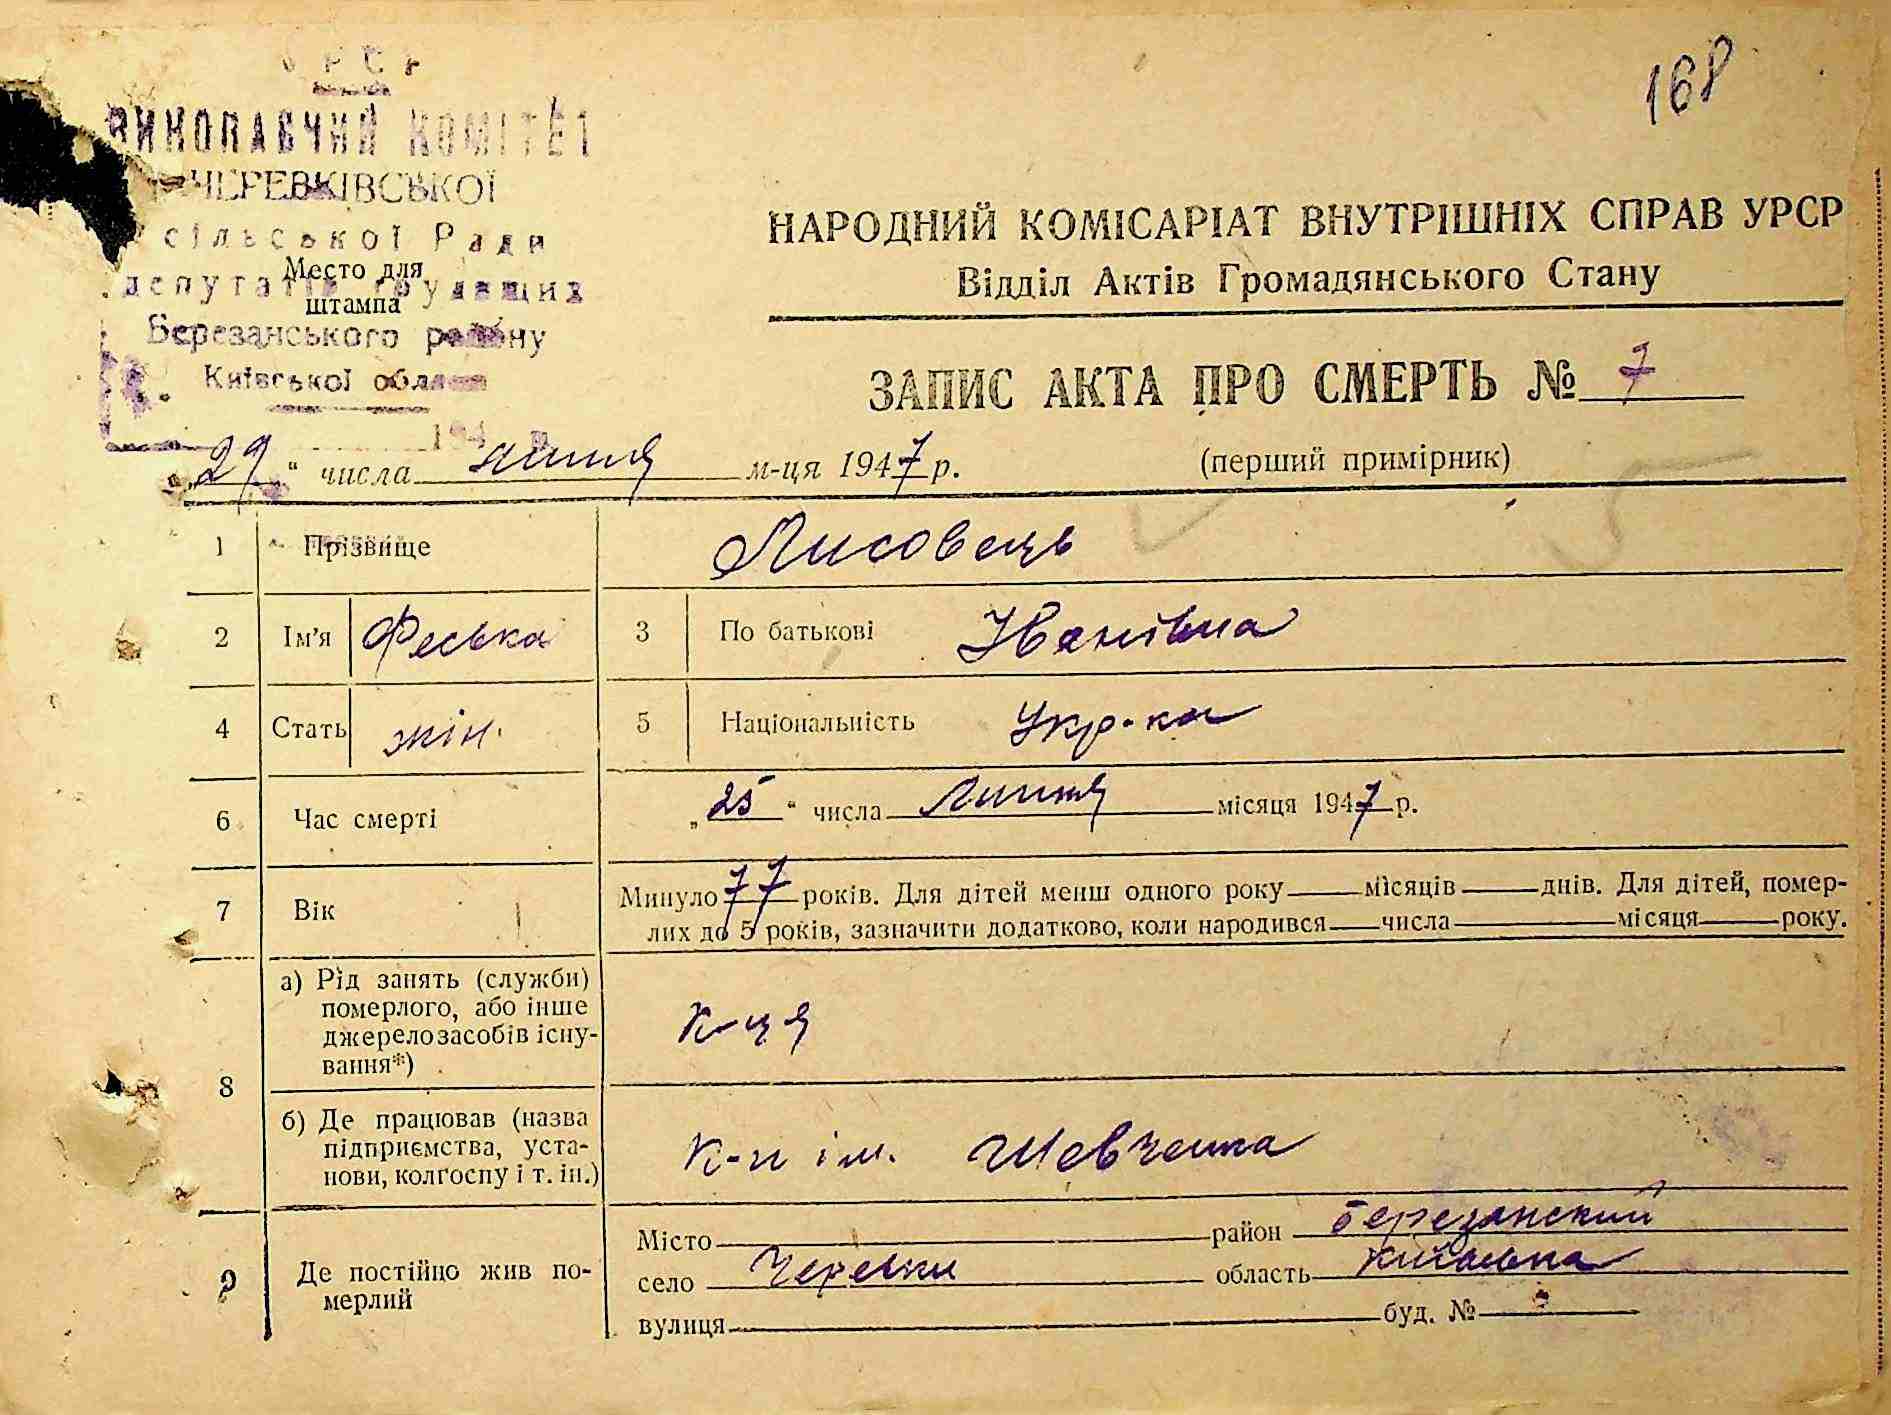 168
УРСР
ВИКОНАВЧИЙ КОМІТЕТ
ЧЕРЕВКІВСЬКОЇ
сільської Ради
депутатів трудящих
Место для
штампа
Березанського району
Київської області
194 р.
НАРОДНИЙ КОМІСАРІАТ ВНУТРІШНІХ СПРАВ УРСР
Відділ Актів Громадянського Стану
ЗАПИС АКТА ПРО СМЕРТЬ № 7
„29“ числа липня м-ця 1947 р. (перший примірник)
1 Прізвище Лисовець
2 Ім'я Феська 3 По батькові Іванівна
4 Стать жін. 5 Національність Укр-ка
6 Час смерті „25“ числа Липня місяця 1947 р.
7 Вік Минуло 77 років. Для дітей менш одного року місяців днів. Для дітей, помер-
лих до 5 років, зазначити додатково, коли народився числа місяця року.
8 а) Рід занять (служби)
померлого, або інше
джерело засобів існу-
вання*)
К-ця
б) Де працював (назва
підприємства, уста-
нови, колгоспу і т. ін.)
К-п ім. Шевченка
9 Де постійно жив по-
мерлий
Місто район Березанский
село Черевки область Київська
вулиця буд. №